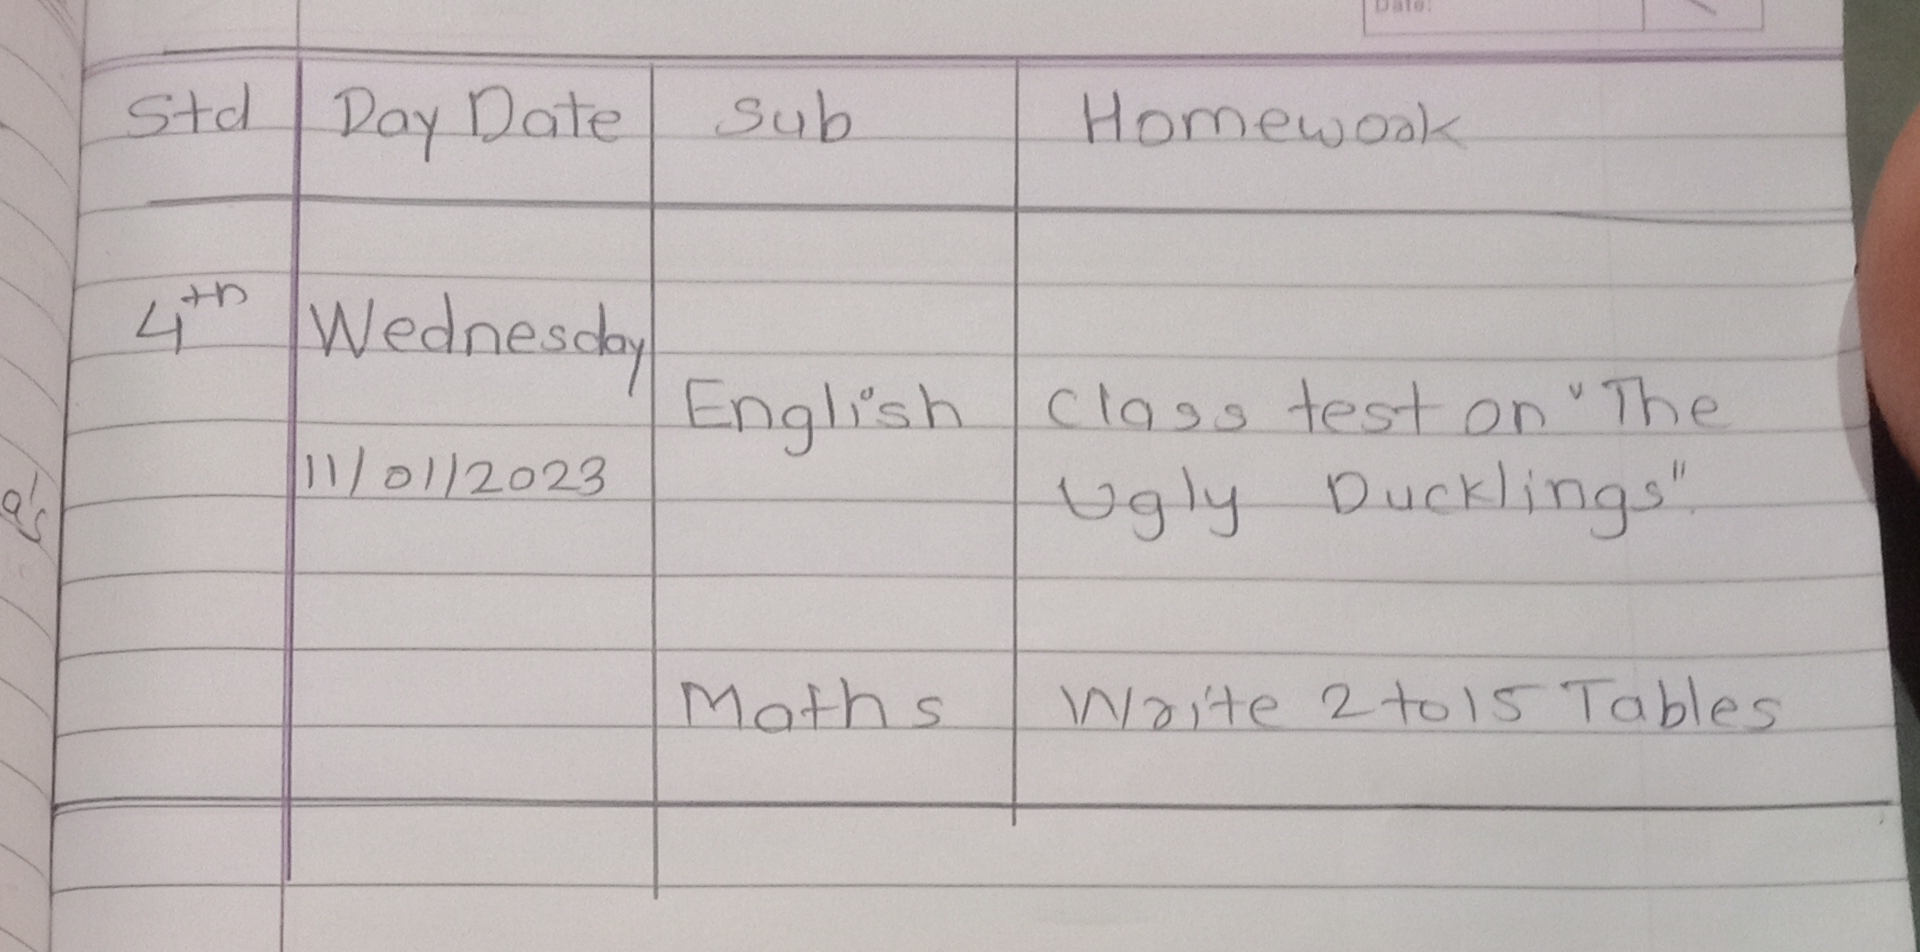 Date:
Std Day Date Sub Homework
4th Wednesday
English Class test on "The
11/01/2023 Ugly Ducklings".
Maths Write 2 to 15 Tables